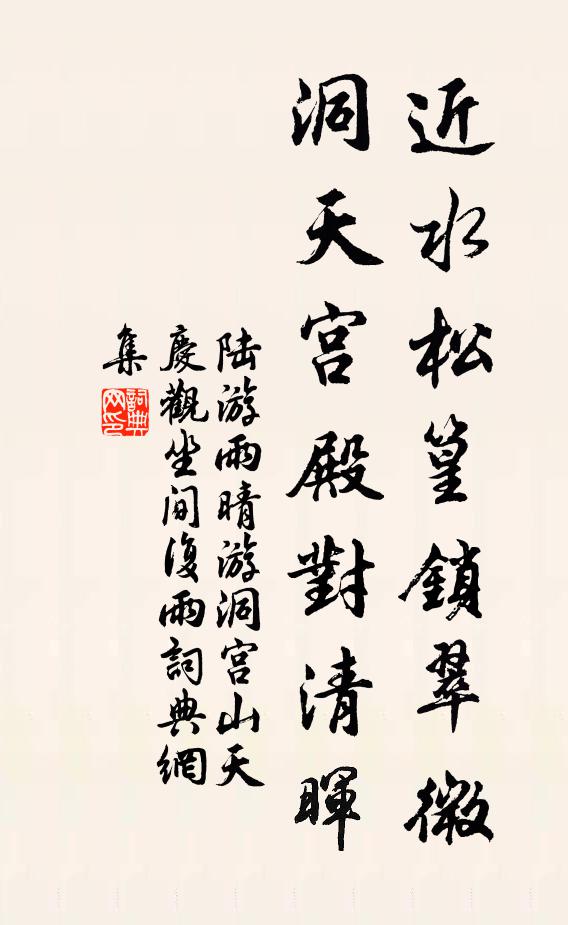 近水松篁鎖翠微
洞天宮殿對清暉
陸游雨晴游洞宮山天
慶觀坐間復雨詞典網
集
詞典
网印